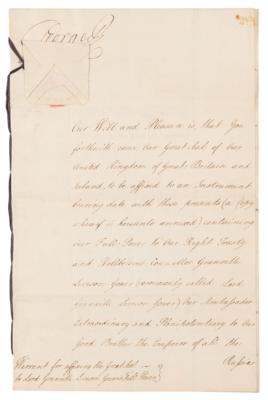 George R
Our Will and Pleasure is, that You
forthwith cause Our Great Seal of Our
United Kingdom of Great Britain and
Ireland, to be affixed to an Instrument
bearing date with these presents (a Copy
whereof is hereunto annexed) containing
Our Full Power to Our Right Trusty
and Wellbeloved Councillor Granville
Leveson Gower (commonly called Lord
Granville Leveson Gower) Our Ambassador
Extraordinary and Plenipotentiary to Our
Good Brother the Emperor of all the
Russias
Warrant for affixing the Great Seal
to Lord Granville Leveson Gower's Full Power